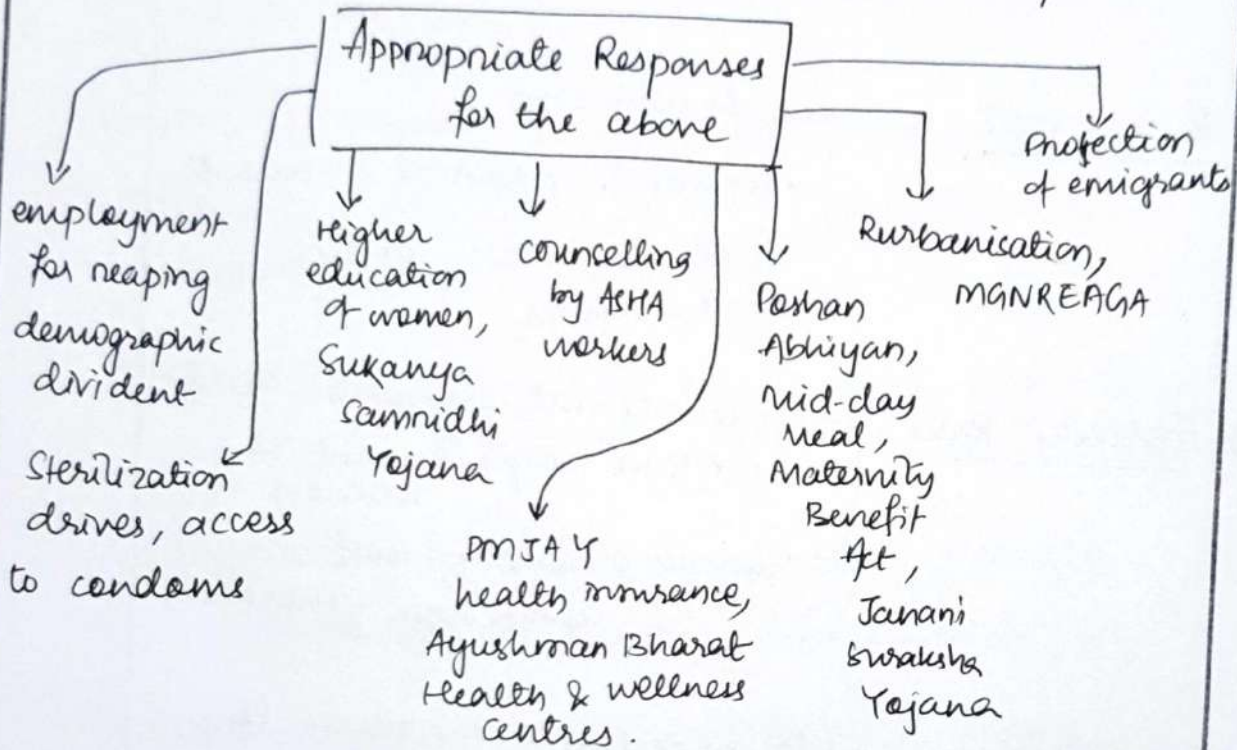 Appropriate Responses
for the above
employment
for reaping
demographic
divident
Sterilization
drives, access
to condoms
Higher
education
of women,
Sukanya
Samridhi
Yojana
counselling
by ASHA
workers
PMJAY
health insurance,
Ayushman Bharat
Health & wellness
centres.
Poshan
Abhiyan,
Mid-day
Meal,
Maternity
Benefit
Act,
Janani
Suraksha
Yojana
Rurbanisation,
MGNREAGA
Protection
of emigrants